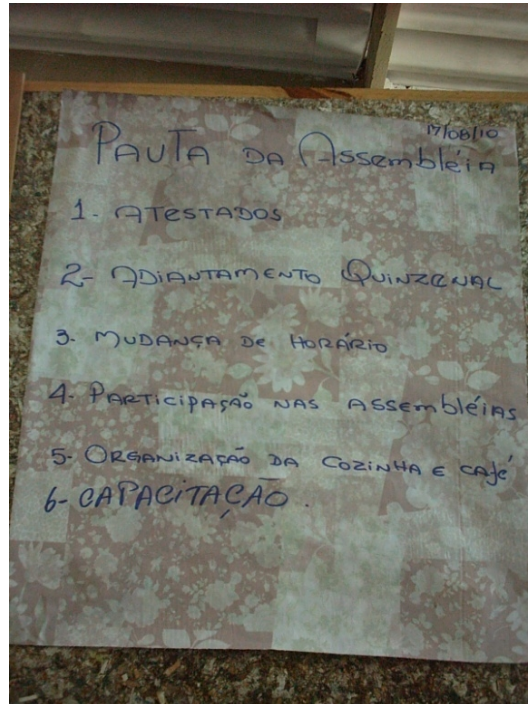 17/08/10
PAUTA DA Assembléia
1. ATESTADOS
2- ADIANTAMENTO QUINZENAL
3. MUDANÇA DE HORÁRIO
4. PARTICIPAÇÃO NAS ASSEMBLÉIAS
5- ORGANIZAÇÃO DA COZINHA E CAFÉ
6- CAPACITAÇÃO.